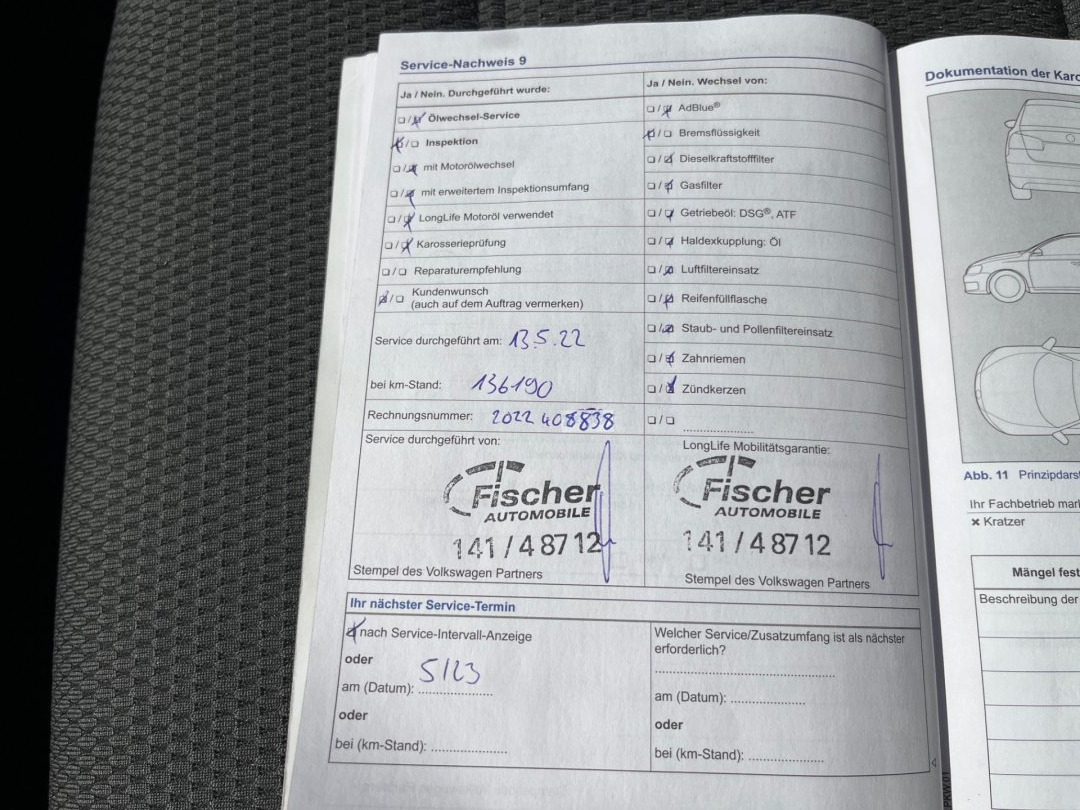 Service-Nachweis 9
Ja / Nein. Durchgeführt wurde:
Ölwechsel-Service
Inspektion
mit Motorölwechsel
mit erweitertem Inspektionsumfang
LongLife Motoröl verwendet
Karosserieprüfung
Reparaturempfehlung
Kundenwunsch
(auch auf dem Auftrag vermerken)
Service durchgeführt am: 13.5.22
bei km-Stand: 136190
Rechnungsnummer: 2022 408838
Ja / Nein. Wechsel von:
AdBlue®
Bremsflüssigkeit
Dieselkraftstofffilter
Gasfilter
Getriebeöl: DSG®, ATF
Haldexkupplung: Öl
Luftfiltereinsatz
Reifenfüllflasche
Staub- und Pollenfiltereinsatz
Zahnriemen
Zündkerzen
Service durchgeführt von:
Fischer
AUTOMOBILE
141 / 48712
Stempel des Volkswagen Partners
LongLife Mobilitätsgarantie:
Fischer
AUTOMOBILE
141 / 48712
Stempel des Volkswagen Partners
Ihr nächster Service-Termin
nach Service-Intervall-Anzeige
oder
am (Datum): 5/23
oder
bei (km-Stand):
Welcher Service/Zusatzumfang ist als nächster
erforderlich?
am (Datum):
oder
bei (km-Stand):
Dokumentation der
Abb. 11
Ihr Fachbetrieb
× Kratzer
Mängel
Beschreibung der